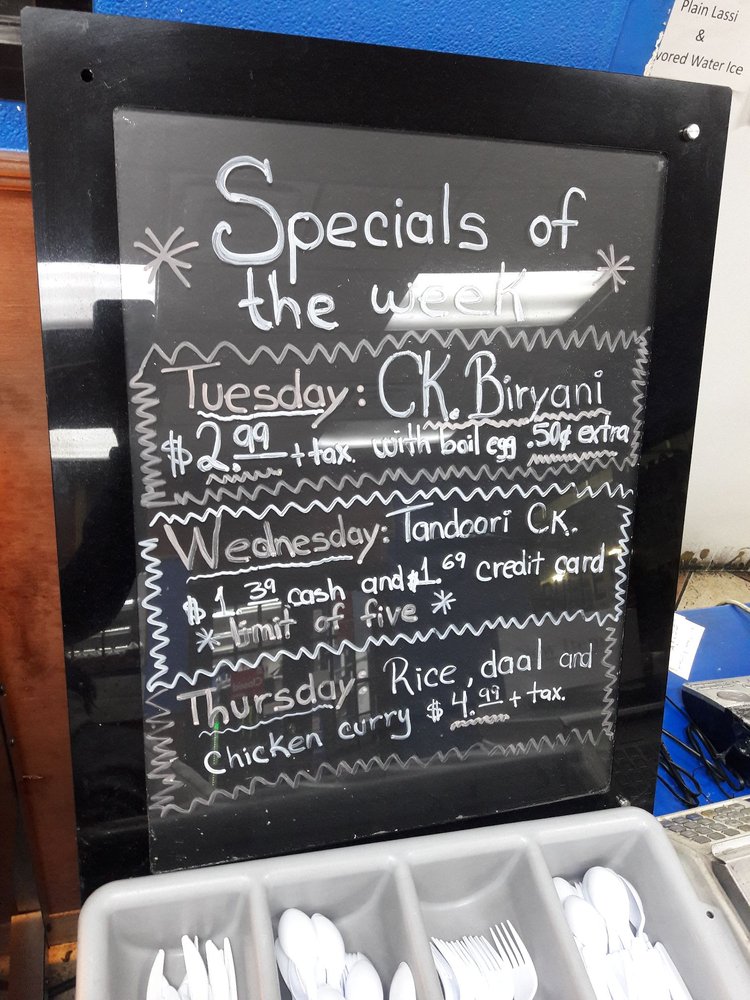 Plain Lassi
&
vored Water Ice
Specials of
* the week *
Tuesday: CK. Biryani
$2.99 + tax. with boil egg .50¢ extra
Wednesday: Tandoori CK.
$1.39 cash and $1.69 credit card
* limit of five *
Thursday: Rice, daal and
chicken curry $4.99 + tax.